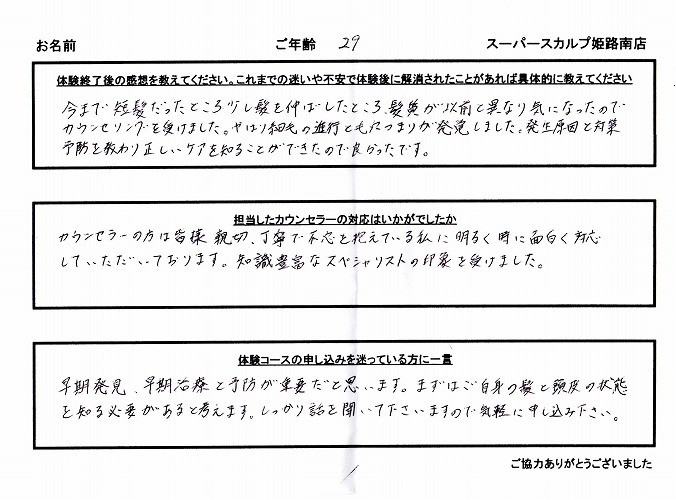 お名前 ご年齢 29 スーパースカルプ姫路南店
体験終了後の感想を教えてください。これまでの迷いや不安で体験後に解消されたことがあれば具体的に教えてください
今まで短髪だったところ少し髪を伸ばしたところ、髪質が以前と異なり気になったので
カウンセリングを受けました。やはり細毛の進行と毛穴つまりが発覚しました。発生原因と対策
予防を教わり正しいケアを知ることができたので良かったです。
担当したカウンセラーの対応はいかがでしたか
カウンセラーの方は皆様親切、丁寧で不安を抱えている私に明るく時に面白く対応
していただいております。知識豊富なスペシャリストの印象を受けました。
体験コースの申し込みを迷っている方に一言
早期発見、早期治療と予防が重要だと思います。まずはご自身の髪と頭皮の状態
を知る必要があると考えます。しっかり話を聞いて下さいますので気軽に申し込み下さい。
ご協力ありがとうございました